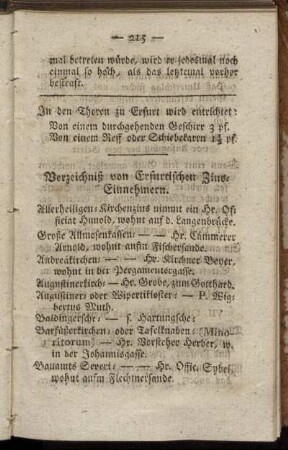 — 215 —
mal betreten würde, wird er jedesmal noch
einmal so hoch, als das letztemal vorher
bestraft.
In den Thoren zu Erfurt wird entrichtet:
Von einem durchgehenden Geschirr 3 pf.
Von einem Reff oder Schiebekarrn 1½ pf.
Verzeichniß von Erfurtischen Zins-
Einnehmern.
Allerheiligen-Kirchenzins nimmt ein Hr. Of-
ficiat Hunold, wohnt auf d. Langenbrücke.
Große Allmosenkassen — — Hr. Cämmerer
Arnold, wohnt aufm Fischersande.
Andreäkirchen — — Hr. Kirchner Beyer,
wohnt in der Pergamentergasse.
Augustinerkirch— Hr. Grobe, zum Gotthard.
Augustiner- oder Wipertikloster — P. Wig-
bertus Muth.
Baldingersche — s. Hartungsche-
Barfüßerkirchen- oder Tafelknaben- (Mino-
ritorum) — Hr. Vorsteher Herber, w.
in der Johannisgasse.
Bauamts Severi — — Hr. Offic. Sybel
wohnt aufm Flechtnersande.